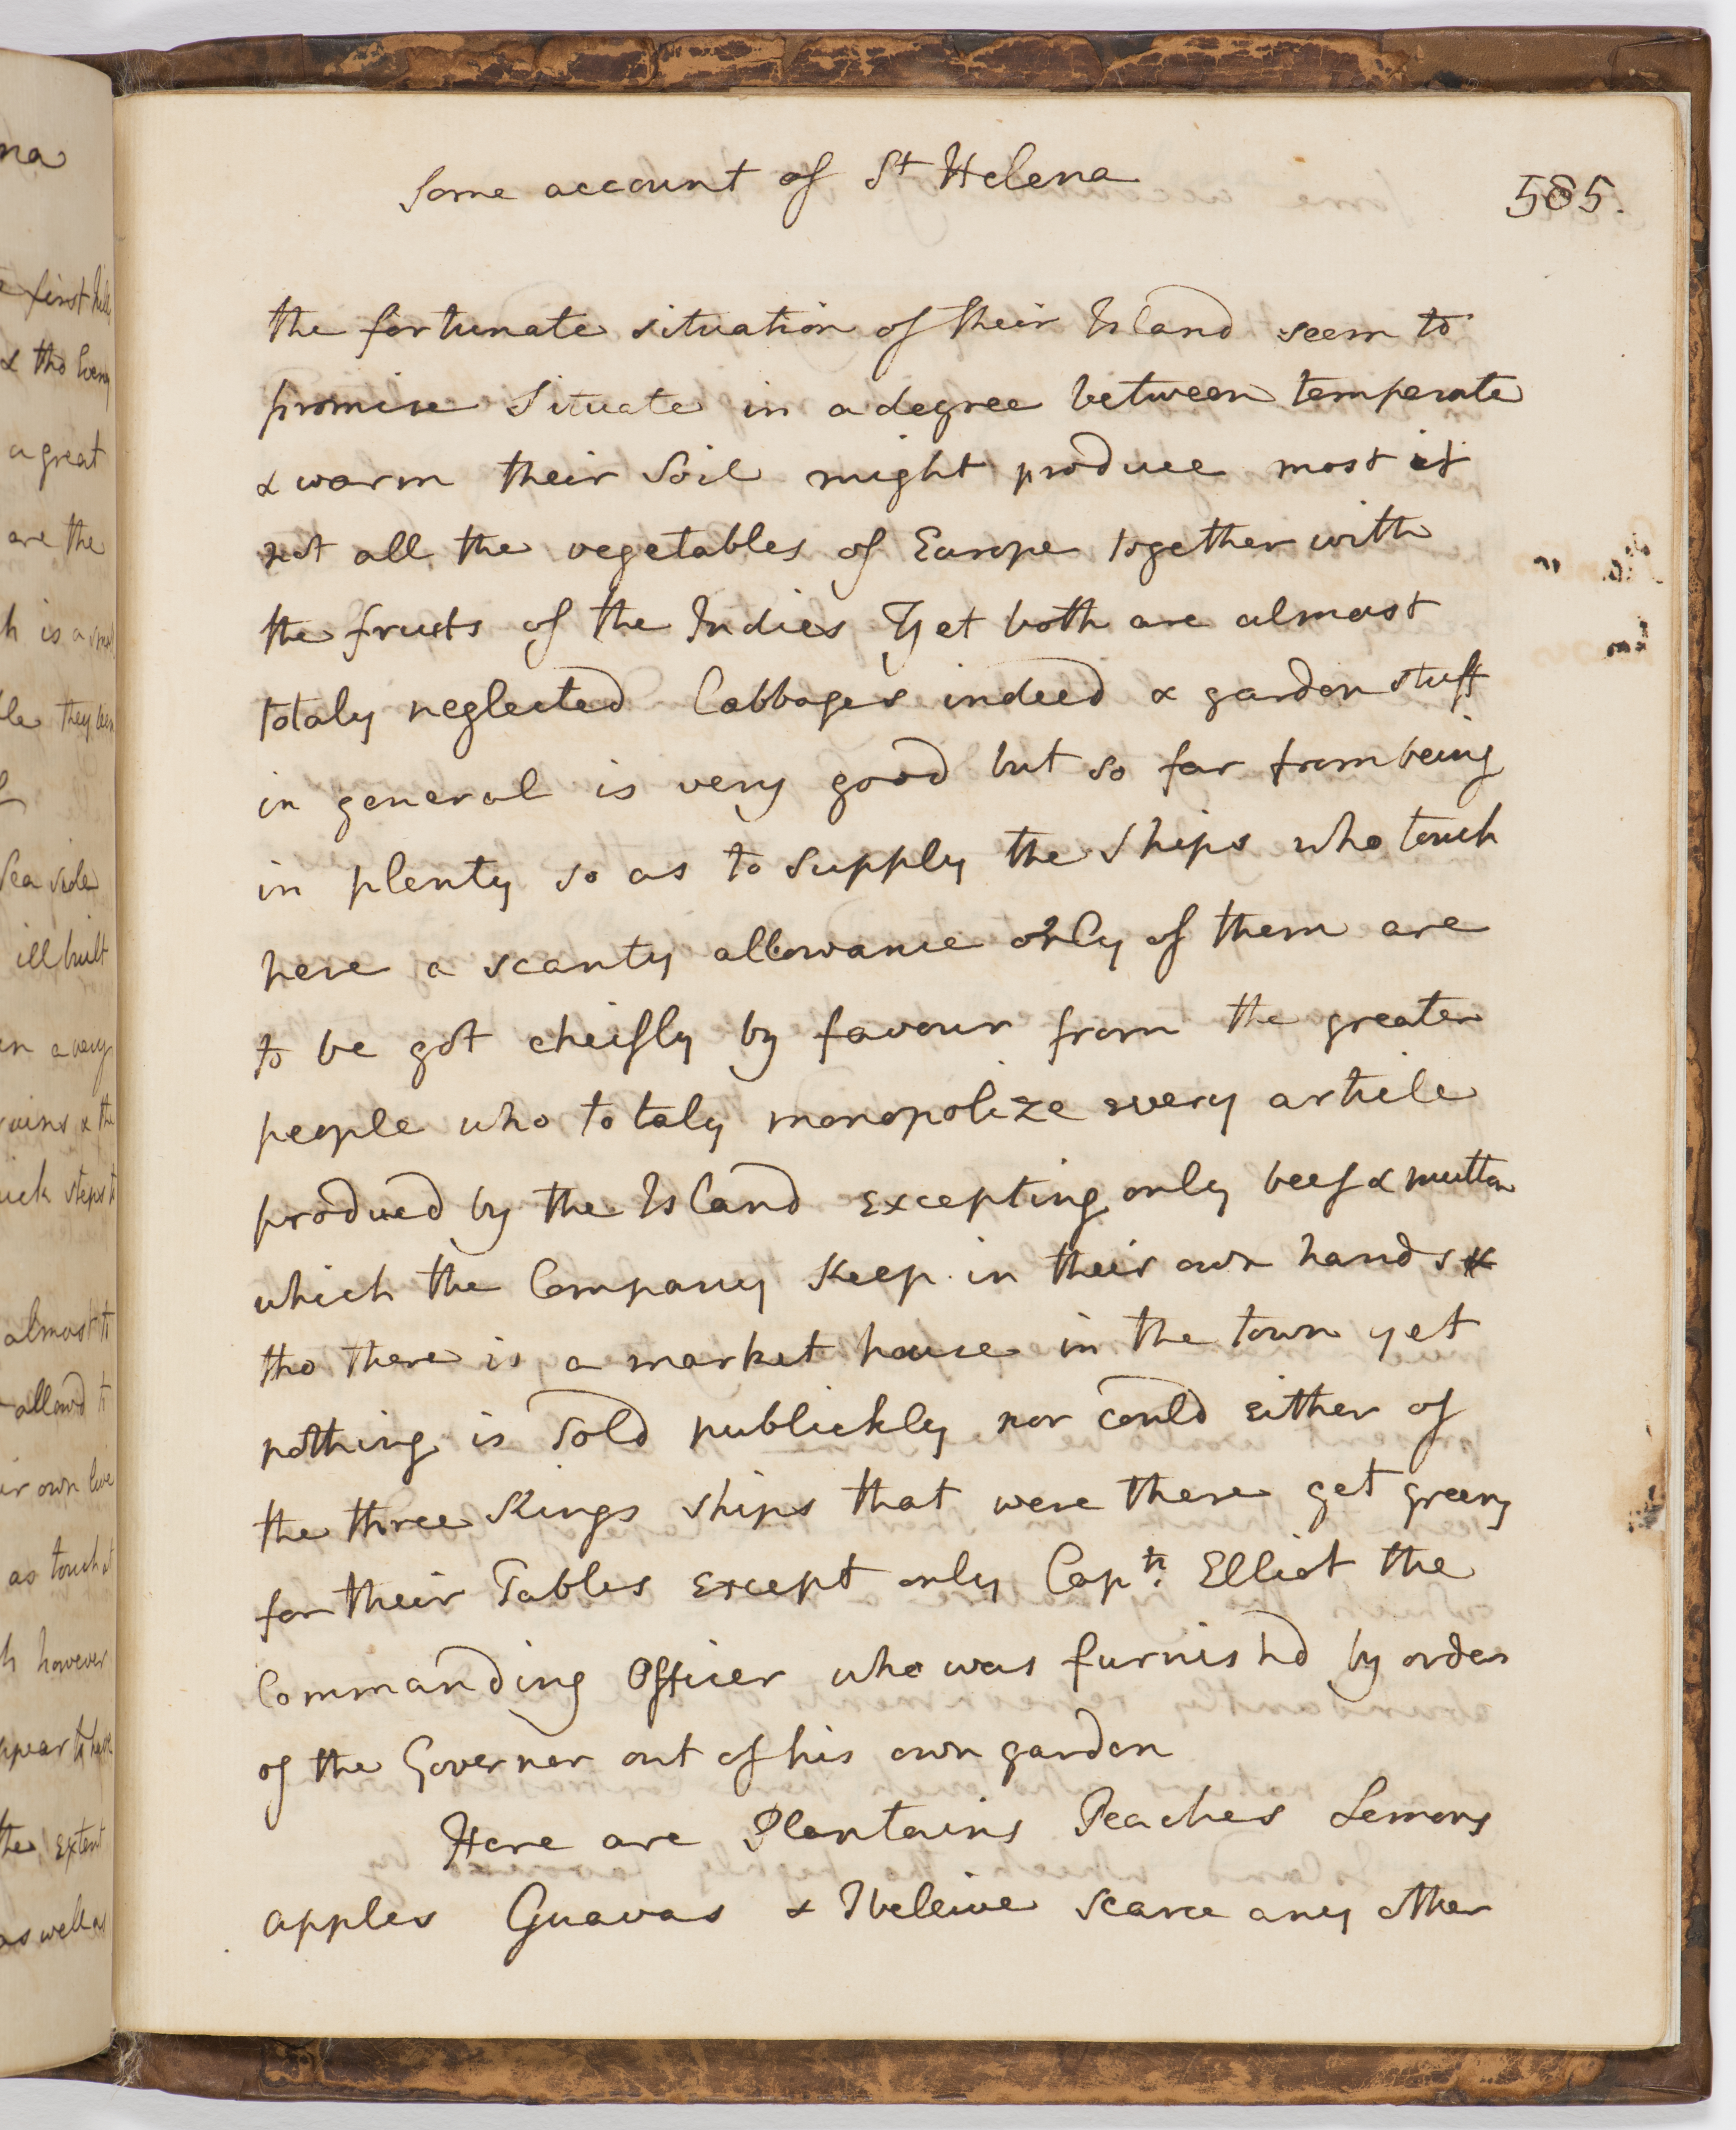 Some account of St Helena
585.
the fortunate situation of their Island seem to
promise Situate in a degree between temperate
& warm their Soil might produce most if
not all the vegetables of Europe together with
the fruits of the Indies Yet both are almost
totaly neglected Cabbages indeed & garden stuff
in general is very good but so far from being
in plenty so as to supply the ships who touch
here a scanty allowance only of them are
to be got cheifly by favour from the greater
people who totaly monopolize every article
produed by the Island excepting only beef & mutton
which the Company Keep in their own hands &
tho there is a market house in the town yet
nothing is sold publickly nor could either of
the three Kings ships that were there get greens
for their Tables except only Captn. Elliot the
Commanding Officer who was furnishd by order
of the Governer out of his own garden
Here are Plantains Peaches Lemons
apples Guavas & I beleive scarce any other
na
& tho
a great
are the
h is a
they
Sea side
ill built
a very
& the
steps
almost
allowd
own
as touch
h however
the extent
as well as